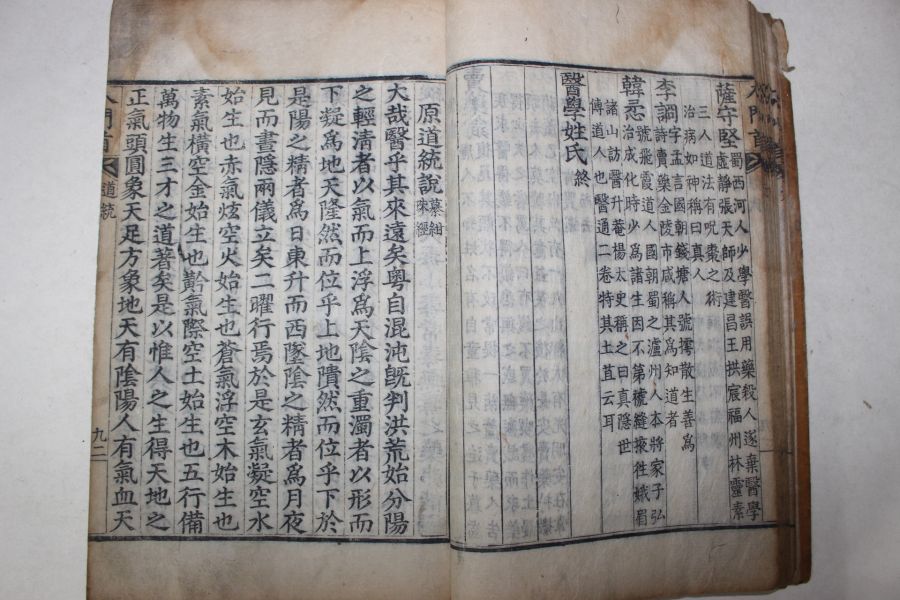 薩守堅蜀西河人少學醫誤用藥殺人遂棄醫學
虛靜張天師及建昌王拱宸福州林靈素
三人道法有呪棗之術
治病如神稱曰真人
李調字孟言國朝錢塘人號樗散生善爲
詩賣藥金陵市咸稱其爲知道者
韓號飛霞道人國朝蜀之瀘州人本將家子弘
治成化時少爲諸生因不第褫縫掖徃峨眉
諸山訪醫升菴楊太史稱之曰真隱世
傳道人也醫通二卷特其土苴云耳
醫學姓氏終
原道統說纂紺珠經
大哉醫乎其來遠矣粤自混沌旣判洪荒始分陽
之輕清者以氣而上浮爲天陰之重濁者以形而
下凝爲地天隆然而位乎上地隤然而位乎下於
是陽之精者爲日東升而西墜陰之精者爲月夜
見而晝隱兩儀立矣二曜行焉於是玄氣凝空水
始生也赤氣炫空火始生也蒼氣浮空木始生也
素氣橫空金始生也黅氣際空土始生也五行備
萬物生三才之道著矣是以惟人之生得天地之
正氣頭圓象天足方象地天有陰陽人有氣血天
入門首
道統
九二